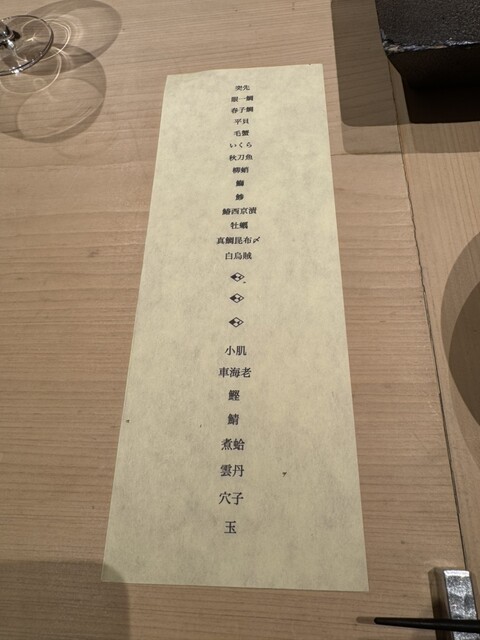 突先
春子鯛
平貝
毛蟹
いくら
秋刀魚
鰤
鯵
鰆西京漬
牡蠣
真鯛昆布〆
白烏賊
小肌
車海老
鰹
鯖
煮蛤
雲丹
穴子
玉